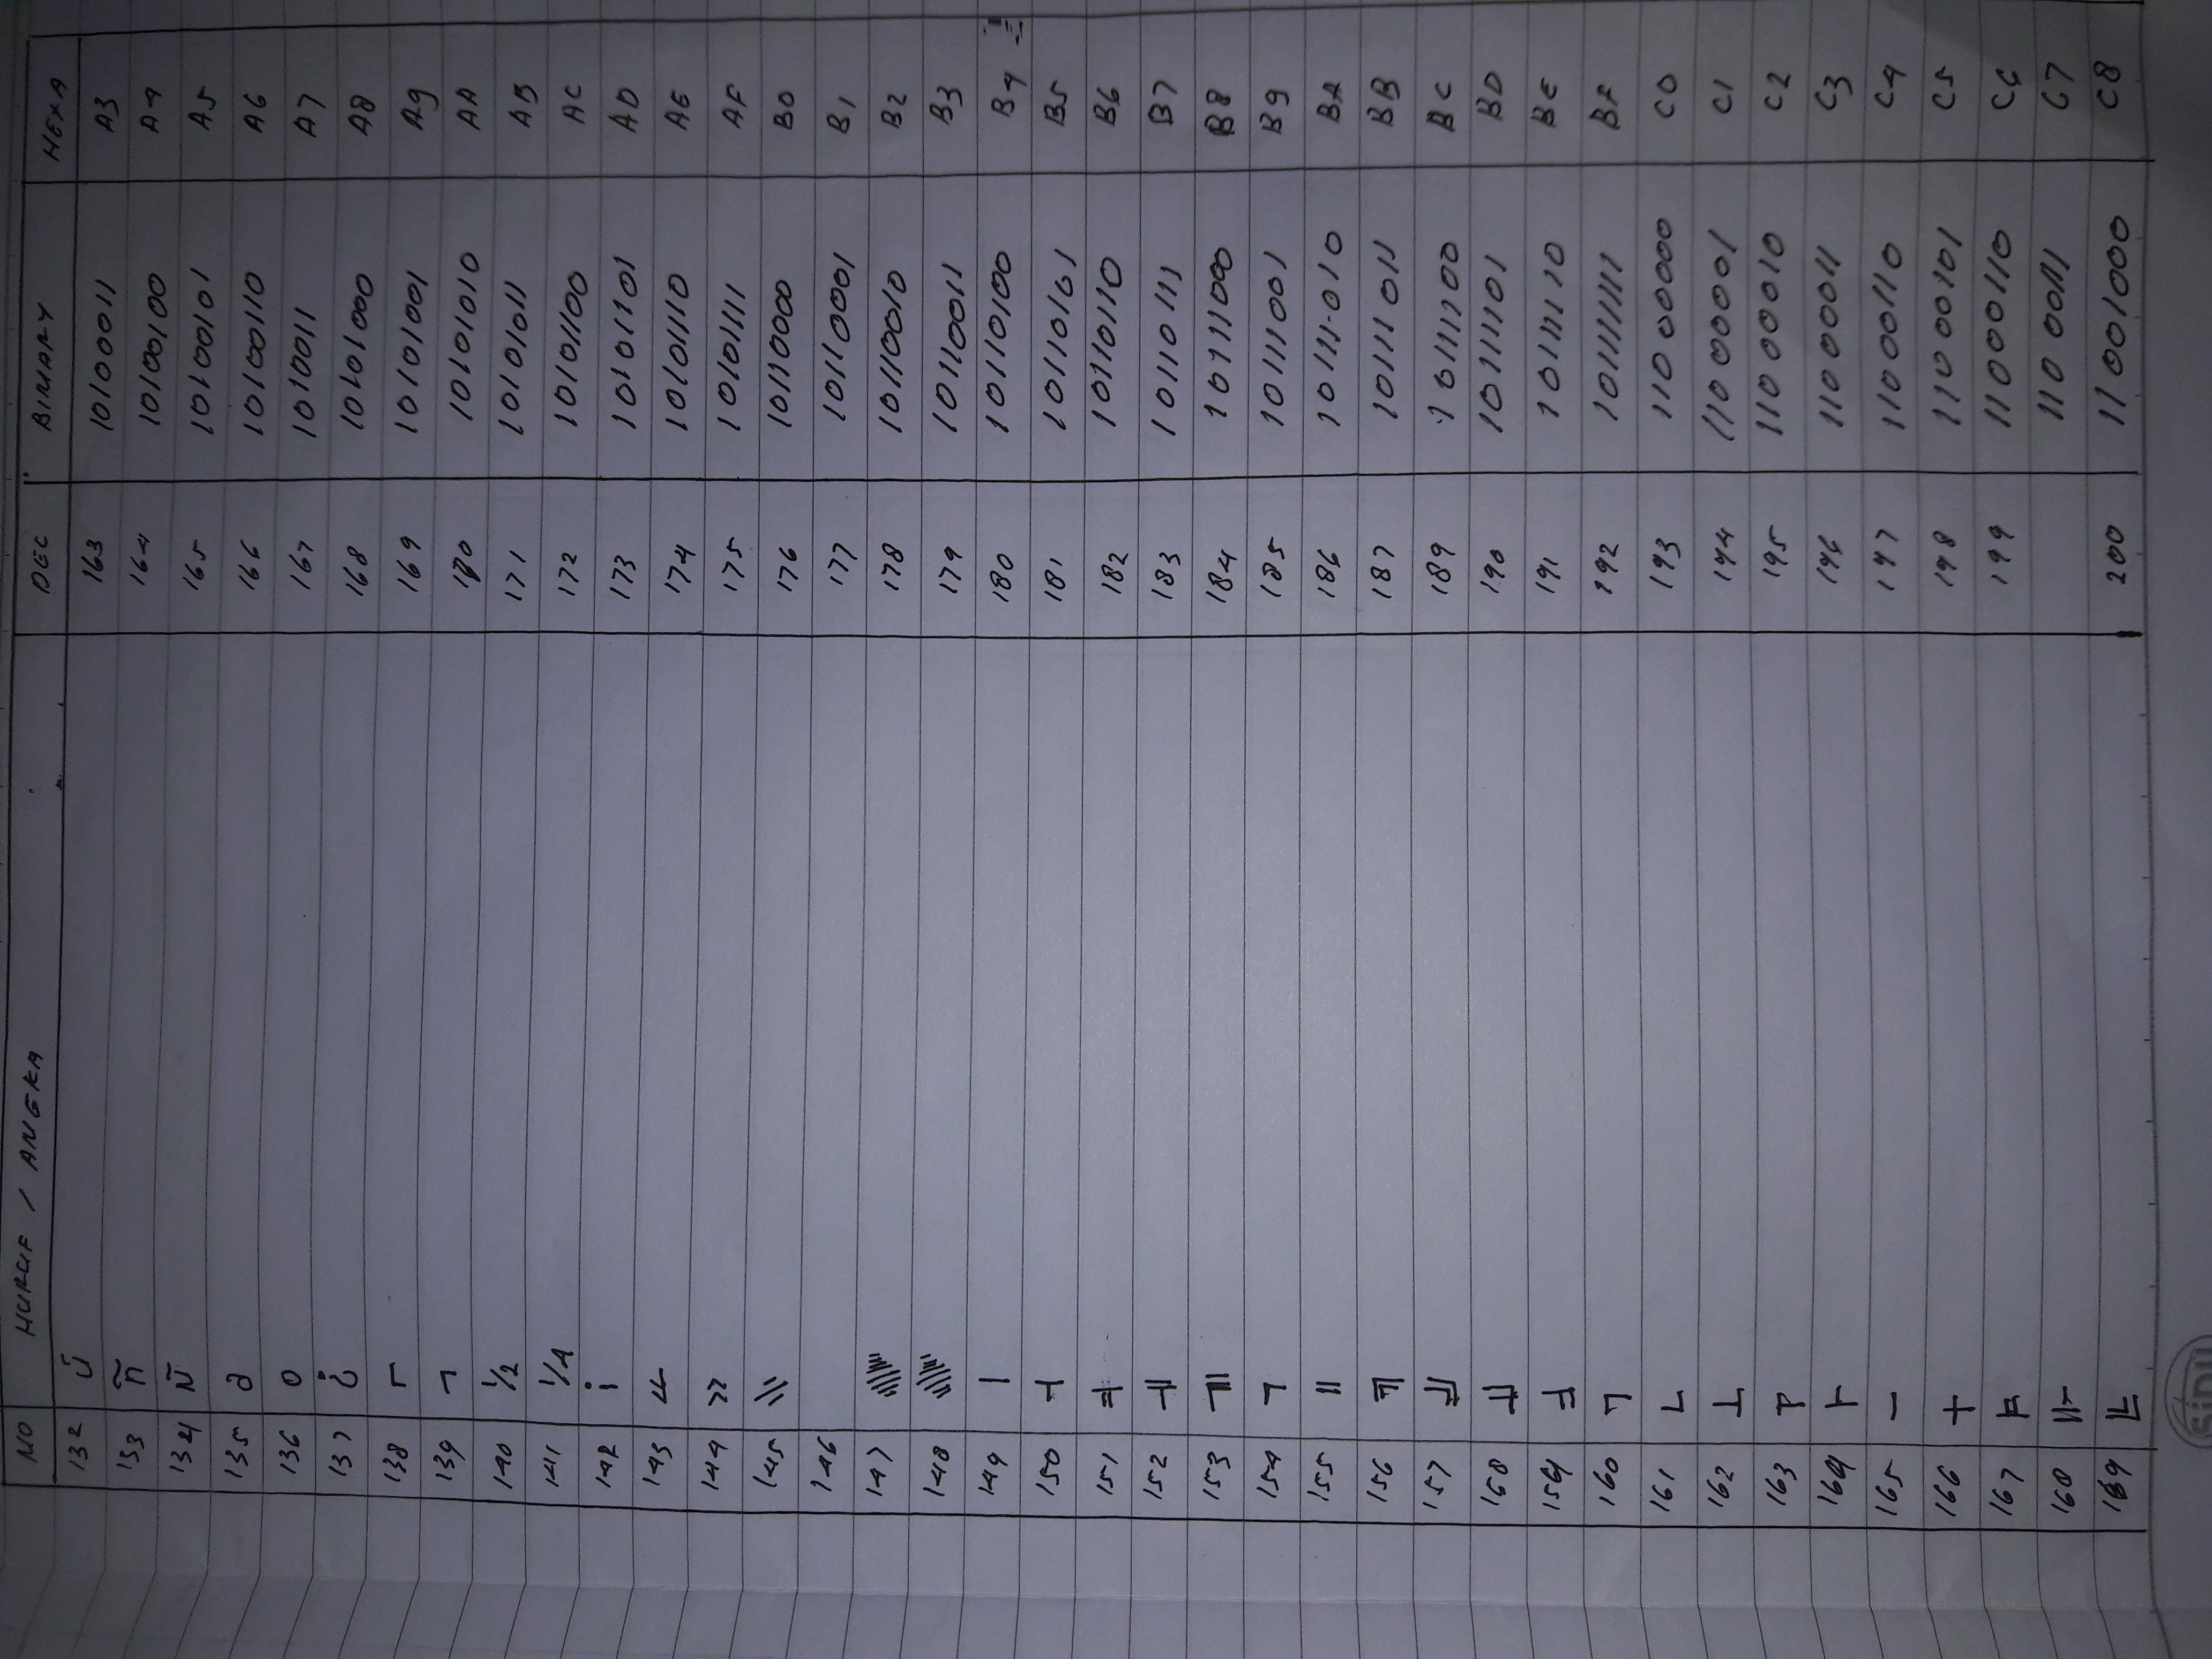 NO HURUF / ANGKA DEC BINARY HEXA
132 ú 163 10100011 A3
133 ñ 164 10100100 A4
134 Ñ 165 10100101 A5
135 a 166 10100110 A6
136 o 167 1010011 A7
137 ¿ 168 10101000 A8
138 ⌐ 169 10101001 A9
139 ¬ 170 10101010 AA
140 1/2 171 10101011 AB
141 1/4 172 10101100 AC
142 i 173 10101101 AD
143 « 174 10101110 AE
144 » 175 10101111 AF
145 176 10110000 B0
146 177 10110001 B1
147 178 10110010 B2
148 179 10110011 B3
149 │ 180 10110100 B4
150 ┤ 181 10110101 B5
151 ╡ 182 10110110 B6
152 ╢ 183 10110111 B7
153 184 10111000 B8
154 ┐ 185 10111001 B9
155 ║ 186 10111010 BA
156 ╗ 187 10111011 BB
157 ╝ 189 10111100 BC
158 ╜ 190 10111101 BD
159 ╛ 191 10111110 BE
160 ┐ 192 101111111 BF
161 └ 193 11000000 C0
162 ┴ 194 11000001 C1
163 ┬ 195 11000010 C2
164 ├ 196 11000011 C3
165 ─ 197 11000110 C4
166 ┼ 198 11000101 C5
167 ╞ 199 11000110 C6
168 ╟ 11000111 C7
169 ╚ 200 11001000 C8
SiDU